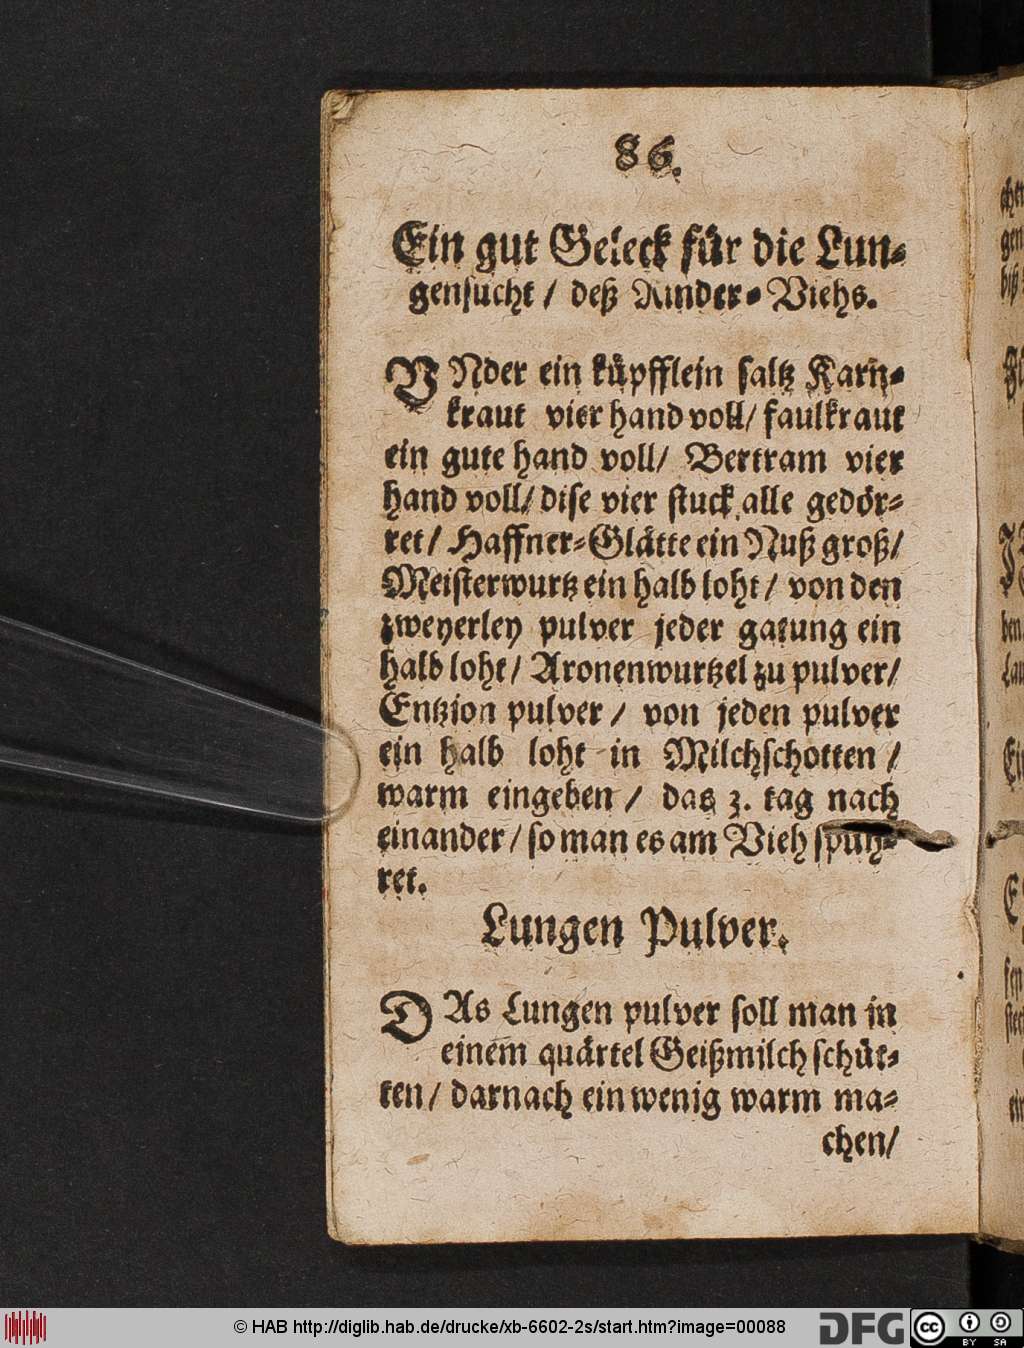 86.
Ein gut Geleck für die Lun-
gensucht / deß Rinder-Viehs.
VNder ein küpfflein saltz Karn-
kraut vier hand voll / faulkraut
ein gute hand voll / Bertram vier
hand voll / dise vier stuck alle gedör-
ret / Haffner-Glätte ein Nuß groß /
Meisterwurtz ein halb loht / von den
zweyerley pulver jeder gatung ein
halb loht / Aronenwurtzel zu pulver /
Entzion pulver / von jeden pulver
ein halb loht in Milchschotten /
warm eingeben / das 3. tag nach
einander / so man es am Vieh spüh-
ret.
Lungen Pulver.
DAs Lungen pulver soll man in
einem quärtel Geißmilch schüt-
ten / darnach ein wenig warm ma-
chen /
© HAB http://diglib.hab.de/drucke/xb-6602-2s/start.htm?image=00088
DFG
cc BY SA